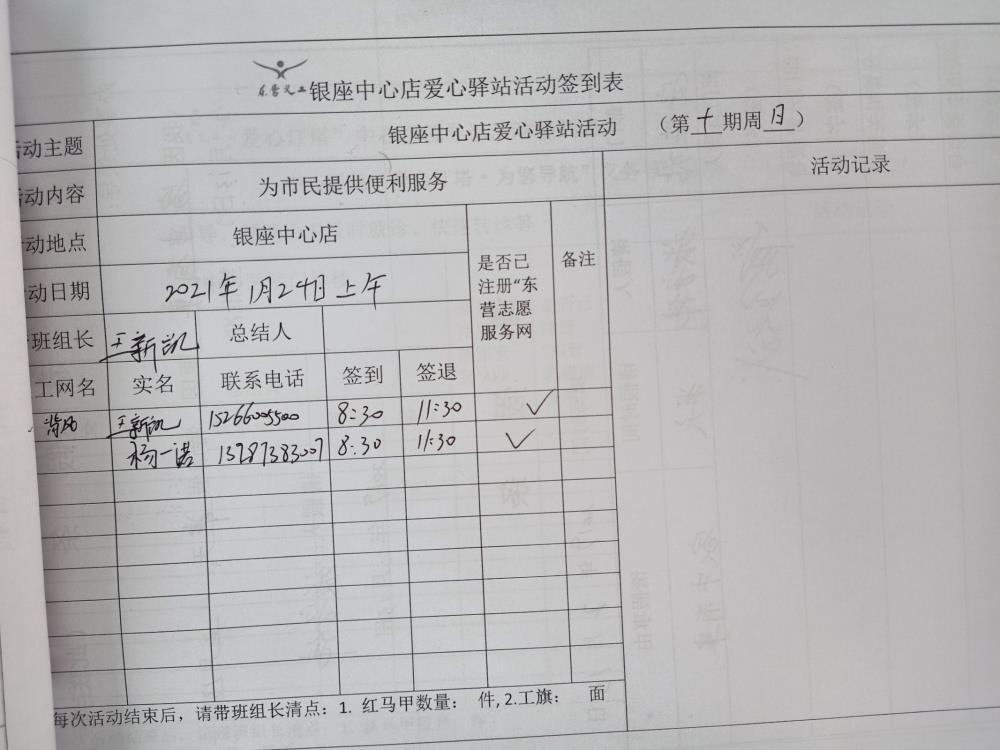 东营义工 银座中心店爱心驿站活动签到表
活动主题 银座中心店爱心驿站活动 （第十期周日）
活动内容 为市民提供便利服务 活动记录
活动地点 银座中心店 是否已注册“东营志愿服务网 备注
动日期 2021年1月24日上午
班组长 王新凯 总结人
工网名 实名 联系电话 签到 签退
王新凯 15266005500 8:30 11:30 ✓
杨一诺 13287383007 8:30 11:30 ✓
每次活动结束后，请带班组长清点：1. 红马甲数量： 件, 2.工旗： 面